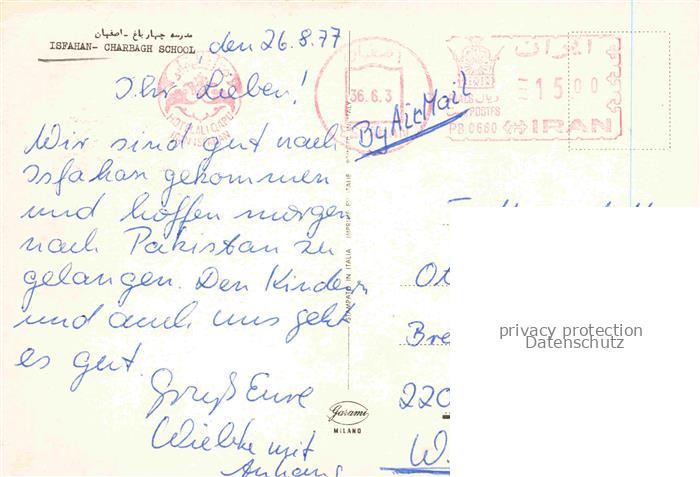 مدرسه چهار باغ - اصفهان
ISFAHAN- CHARBAGH SCHOOL
, den 26.8.77
Ihr Lieben!
Wir sind gut nach
Isfahan gekommen
und hoffen morgen
nach Pakistan zu
gelangen. Den Kindern
und auch uns geht
es gut.
Gruß Eure
Wiebke mit
Anhang
HOTEL ALI QAPU
اصفهان
36.6.3
ایران
1500
POSTES
PB.0660 IRAN
By Air Mail
STAMPATO IN ITALIA
Garami
MILANO
Ot
Bre
220
W.
privacy protection
Datenschutz